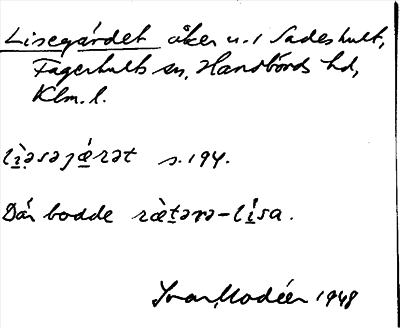 Lisegärdet åker u. 1 Sadeshult,
Fagerhults sn, Handbörds hd,
Klm. l.
lìəsəjǽrət s. 194.
Där bodde ræ̀tərə-lísa.
Ivar Modéer 1948